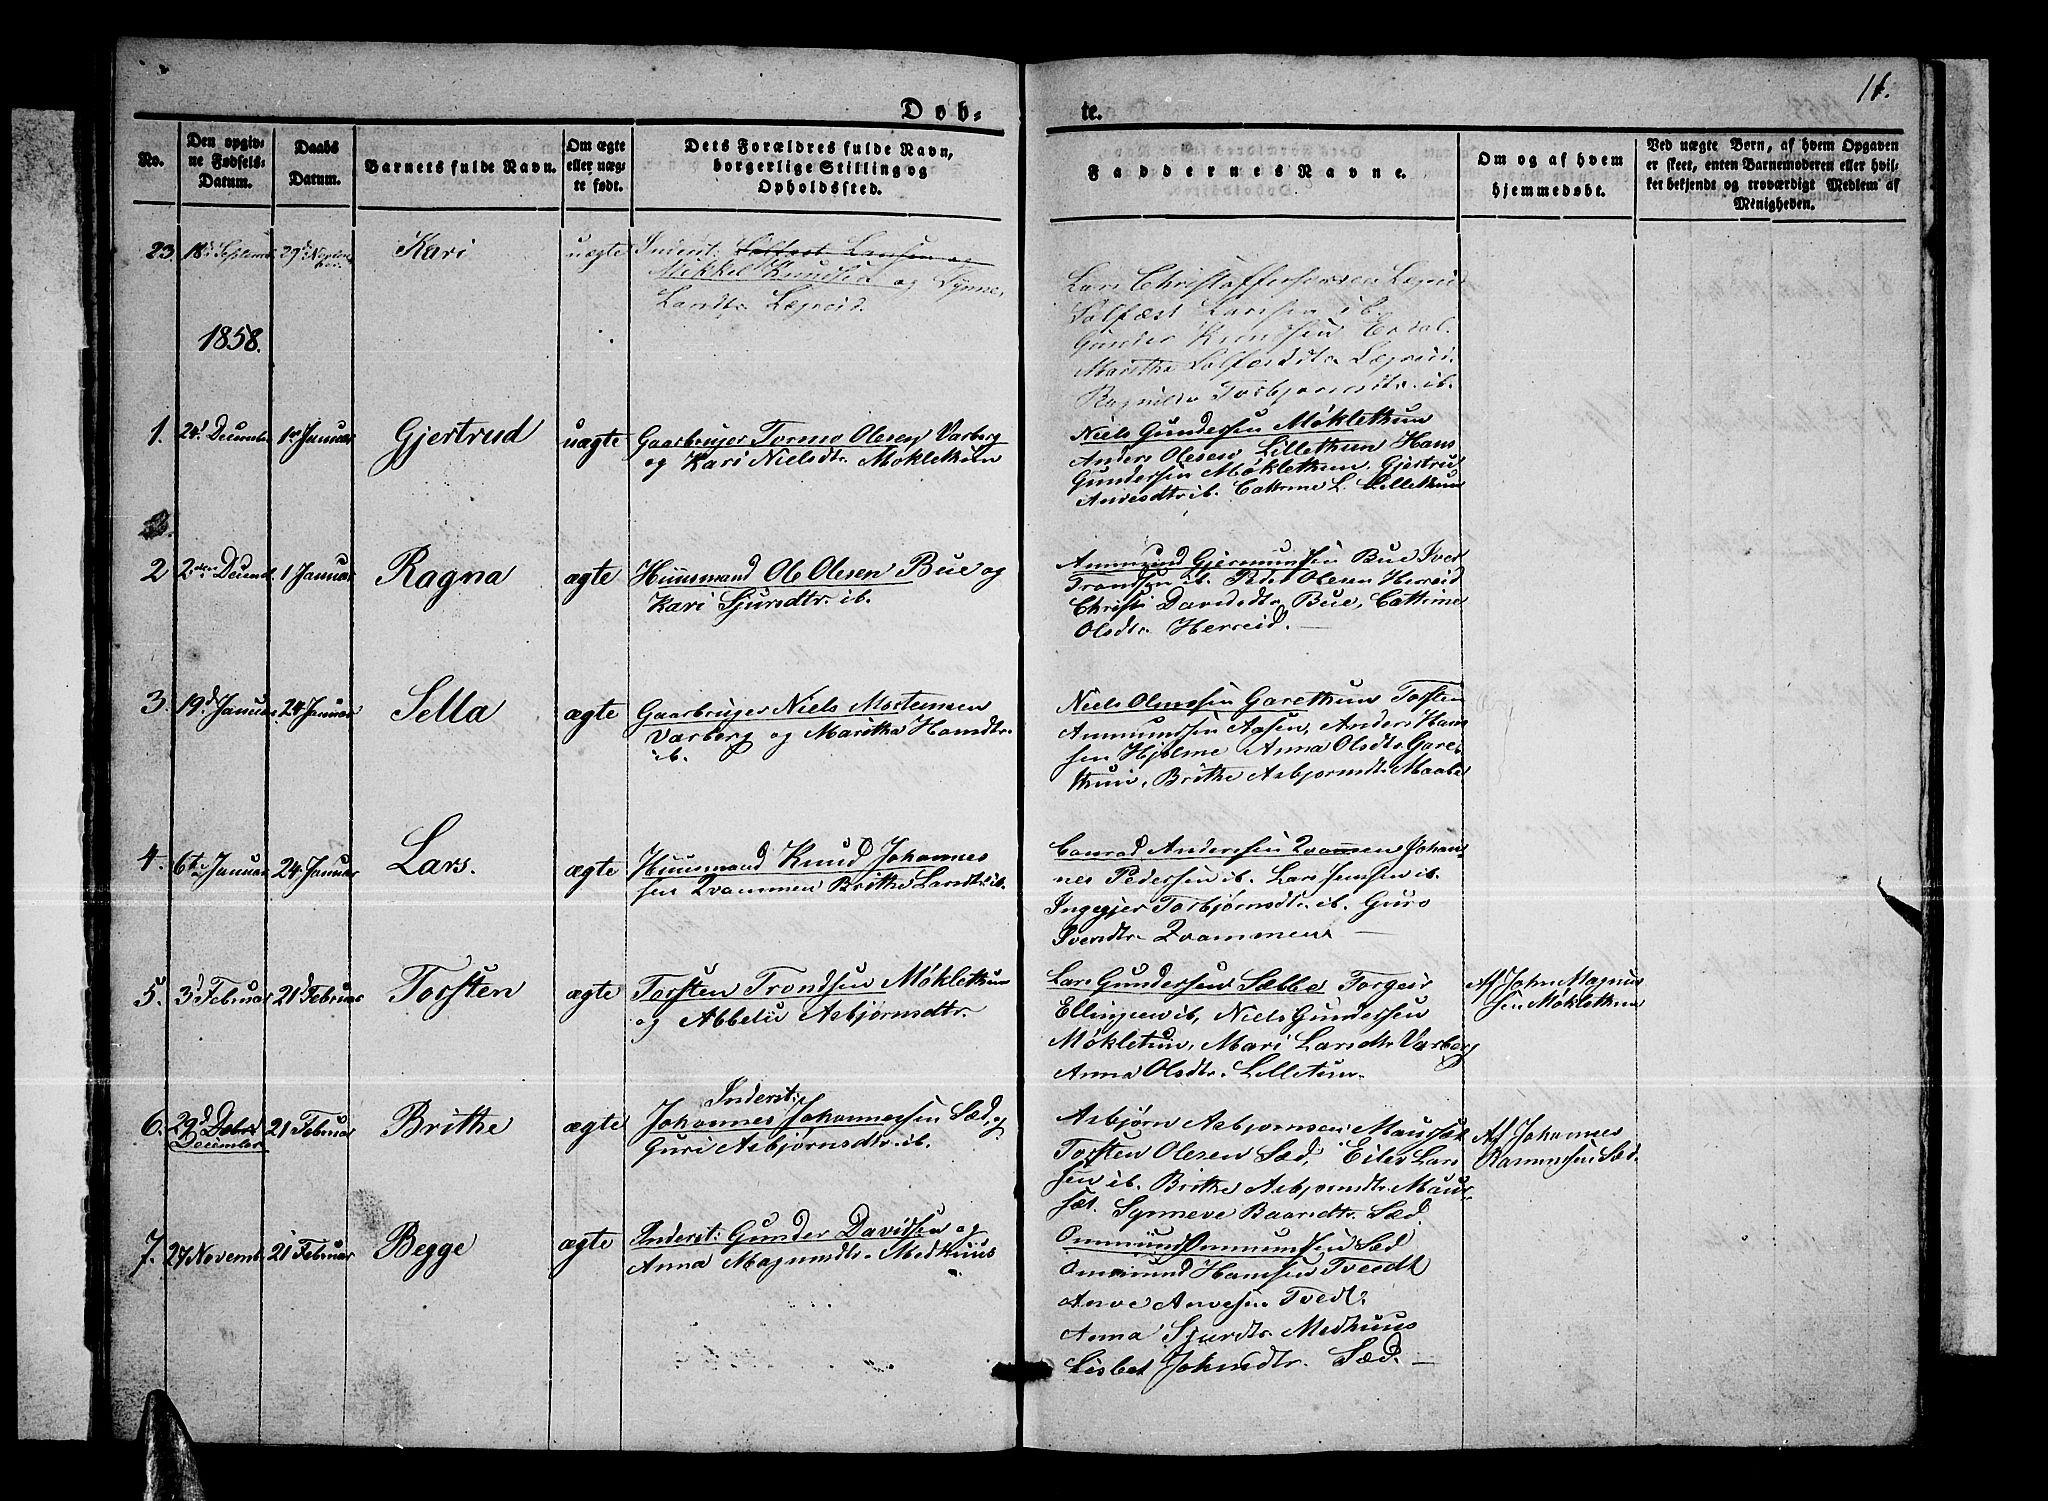 Døb-
te.
16.
No.
Den opgiv-
ne Fødsels-
Datum.
Daabs
Datum.
Barnets fulde Navn.
Om ægte
eller uæg-
te født.
Dets Forældres fulde Navn,
borgerlige Stilling og
Opholdssted.
Faddernes Navne.
Om og af hvem
hjemmedøbt.
Ved uægte Børn, af hvem Opgaven
er skeet, enten Barnemoderen eller hvil-
ket bekjendt og troværdigt Medlem af
Menigheden.
23. 18d Septemb. 29d Novem-
ber
Kari
uægte
Inderst: Solfæst Larssen og
Mikkel Knudsen og Synne
Larsdtr. Læpreid.
Lars Christoffersen Læpreid
Solfæst Larssen ib.
Gunder Knudsen Erdal.
Maritha Solfæstdtr. Læpreid.
Ragnilda Torbjørnsdtr. ib.
1858.
1. 24d Decembr 1ste Januar
Gjertrud
uægte
Gaarbruger Tormo Olesen Varberg
og Kari Nielsdtr. Møklethun
Niels Gundersen Møklethun
Anders Olesen Lillethun Hans
Gundersen Møklethun. Gjertrud
Arvesdtr ib. Cathrine L. Lillethun
2 2den Decemb. 1 Januar
Ragna
ægte
Huusmand Ole Olesen Bue og
Kari Sjursdtr. ib.
Ammund Gjermundsen Bue Iver
Trondsen ib. Peder Olesen Herreid
Christi Davidsdtr. Bue, Cathrine
Olsdtr. Herreid. —
3. 19d Januar. 24 Januar
Sella
ægte
Gaarbruger Niels Mortensen
Varberg og Maritha Hansdtr.
ib.
Niels Olassen Garethun Torsten
Ammundsen Aasen, Anders Hans
sen Hjelme Anna Olsdtr Gare-
thun, Brithe Asbjørnsdtr. Maale
4. 6te Januar 24 Januar
Lars.
ægte
Huusmand Knud Johannes
sen Qvammen Brithe Larsdtr. ib.
Conrad Andersen Qvammen Johan-
nes Pedersen ib. Lars Jenssen ib.
Ingegjer Torbjørnsdtr. ib. Guro
Svendtr. Qvammen —
5. 3d Februar 21d Februar
Torsten
ægte
Torsten Trondsen Møklethun
og Abbelu Asbjørnsdtr.
Lars Gundersen Sæbbe Torgeir
Ellingsen ib, Niels Gundersen
Møkletun, Mari Larsdtr Varberg
Anna Olsdtr. Lilletun.
Af John Magnus
sen Møklethun
6. 29d Debr
December 21 Februar
Brithe
ægte
Inderst:
Johannes Johannessen Sæd, og
Guri Asbjørnsdtr. ib.
Asbjørn Asbjørnsen Maursæt
Torsten Olesen Sæd, Eilev Lars
sen ib. Brithe Asbjørnsdtr. Maur-
sæt. Synneve Baardtr. Sæd.
Af Johannes
Rasmussen Sæd.
7. 27 Novemb. 21 Februar
Begge
ægte
Inderst: Gunder Davidsen og
Anna Magnusdtr. Medhuus
Ommund Ommundsen Sæd
Ommund Hanssen Tvedt
Arve Arvesen Tvedt.
Anna Sjurdtr. Medhuus
Lisbet Johnsdtr. Sæd. —